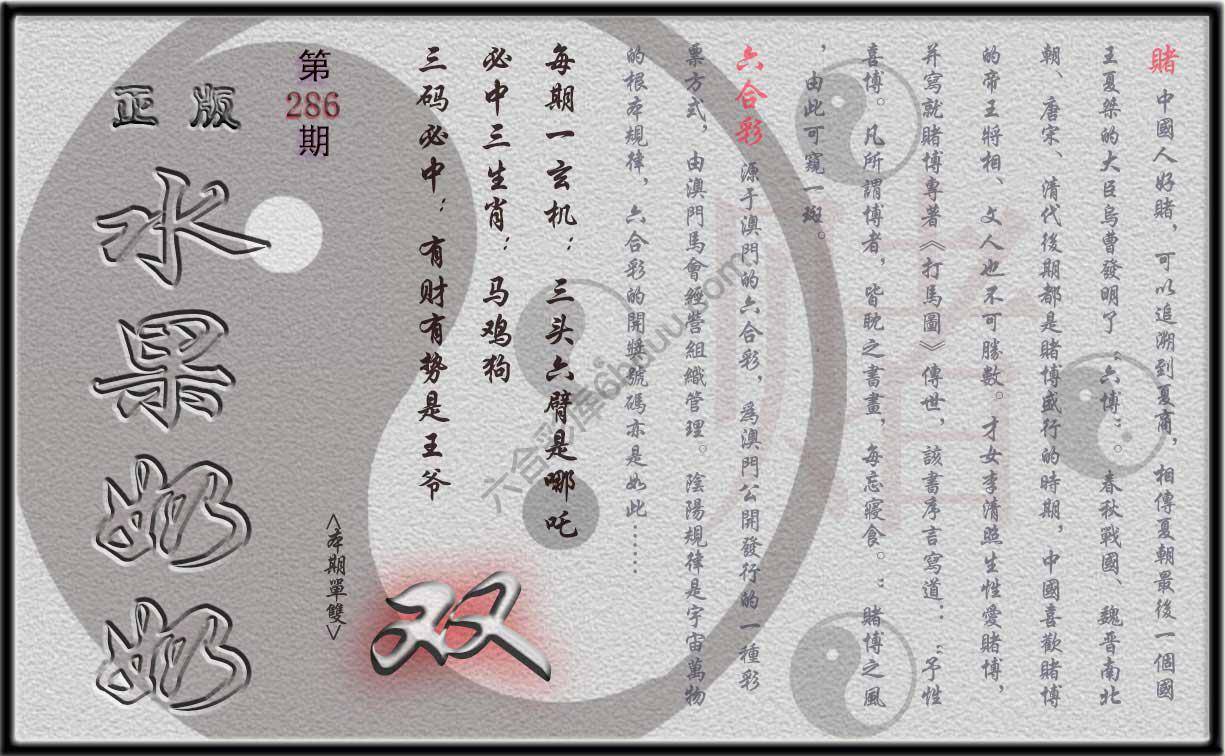 賭 中國人好賭，可以追溯到夏商，相傳夏朝最後一個國
王夏桀的大臣烏曹發明了“六博”。春秋戰國、魏晋南北
朝、唐宋、清代後期都是賭博盛行的時期，中國喜歡賭博
的帝王將相、文人也不可勝數。才女李清照生性愛賭博，
并寫就賭博專著《打馬圖》傳世，該書序言寫道：“予性
喜博。凡所謂博者，皆眈之書畫，每忘寢食。”賭博之風
，由此可窺一斑。
六合彩 源于澳門的六合彩，爲澳門公開發行的一種彩
票方式，由澳門馬會經營組織管理。陰陽規律是宇宙萬物
的根本規律，六合彩的開獎號碼亦是如此……
每期一玄机：三头六臂是哪吒
必中三生肖：马鸡狗
三码必中：有财有势是王爷
第286期
<本期單雙>
双
正版
水果奶奶
賭
六合彩库6hduu.com